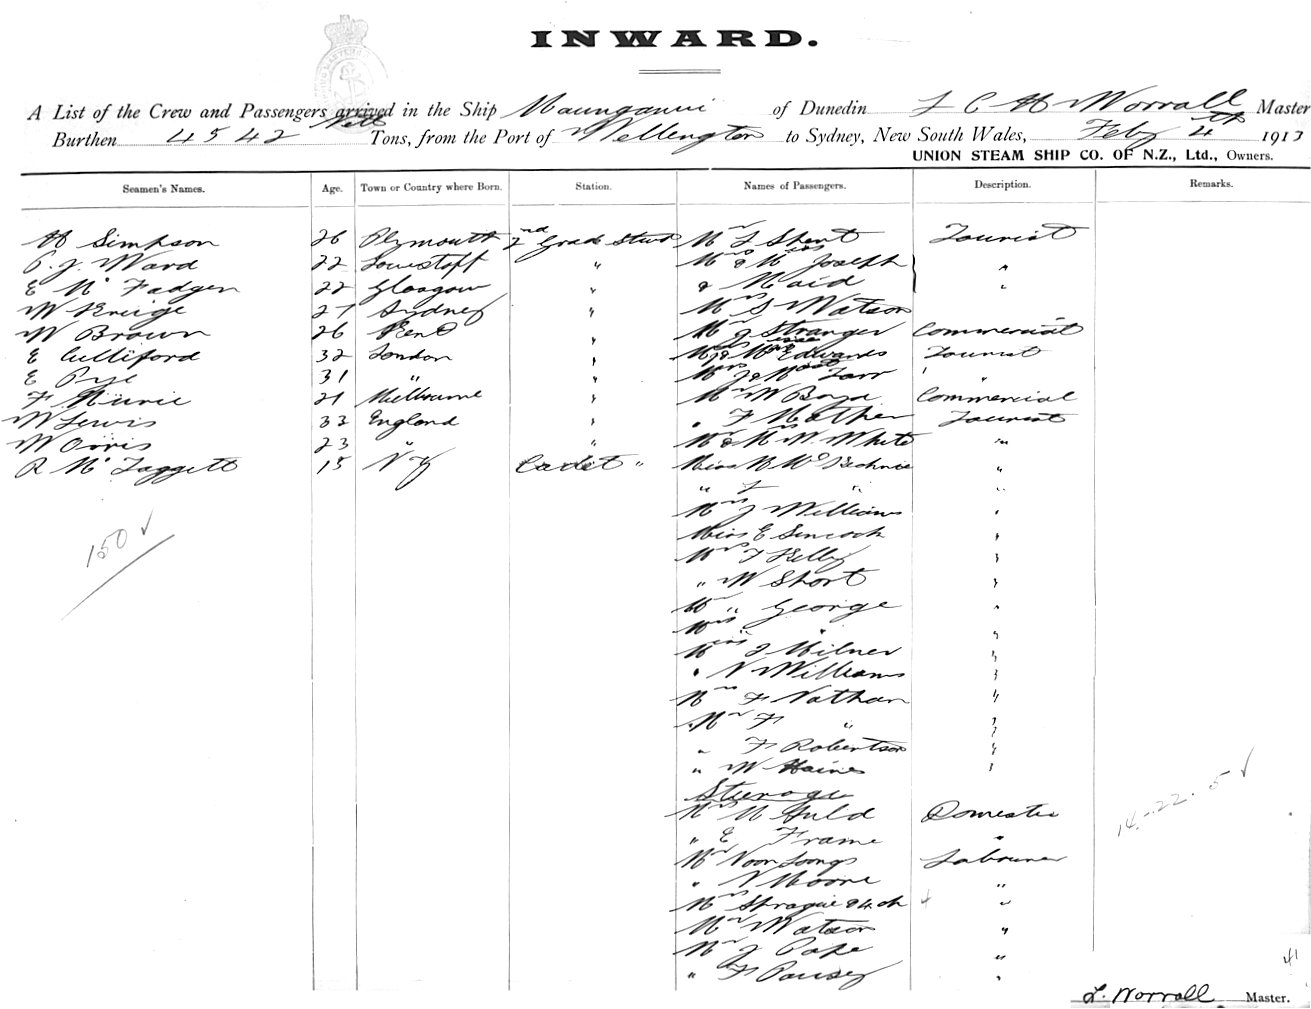 INWARD.
A List of the Crew and Passengers arrived in the Ship Maunganui of Dunedin L C H Worrall Master
Burthen 4542 Nett Tons, from the Port of Wellington to Sydney, New South Wales, Feby 4th 1913
UNION STEAM SHIP CO. OF N.Z., Ltd., Owners.
Seamen's Names. Age. Town or Country where Born. Station. Names of Passengers. Description. Remarks.
H Simpson 26 Plymouth 2nd Grade Stwd Mr Tourist
P. J. Ward 22 Lowestoft " Mrs & Miss Joseph "
E Mc Fadgen 22 Glasgow " & Maid "
W 27 Sydney " Mrs S Watson
W Brown 26 Kent " Mr J Stranger Commercial
E Culliford 32 London " Edwards Tourist
E Pye 31 " " "
F 21 Melbourne " Mr W Boyd Commercial
W Lewis 33 England " " F Mather Tourist
W Orris 23 " " Mr & Mrs W. White "
R Mc Taggett 15 N Z Cadet " Miss "
" " "
Mrs J Williams "
Miss E Sincock "
Mrs F Kelly "
" W Short "
Mr " George "
Mrs " "
Miss J Milner "
" V Williams "
Mrs F Nathan "
Mr F " "
" F Robertson "
" W Haines "
Steerage
Mrs M Auld Domestic
" E Frame "
Mr Labourer
" V Moore "
Mrs Sprague & 4 ch 4 "
Mr Watson "
Mr J Pape "
" F "
150 ✓
14.-22.5 ✓
41
L. Worrall Master.